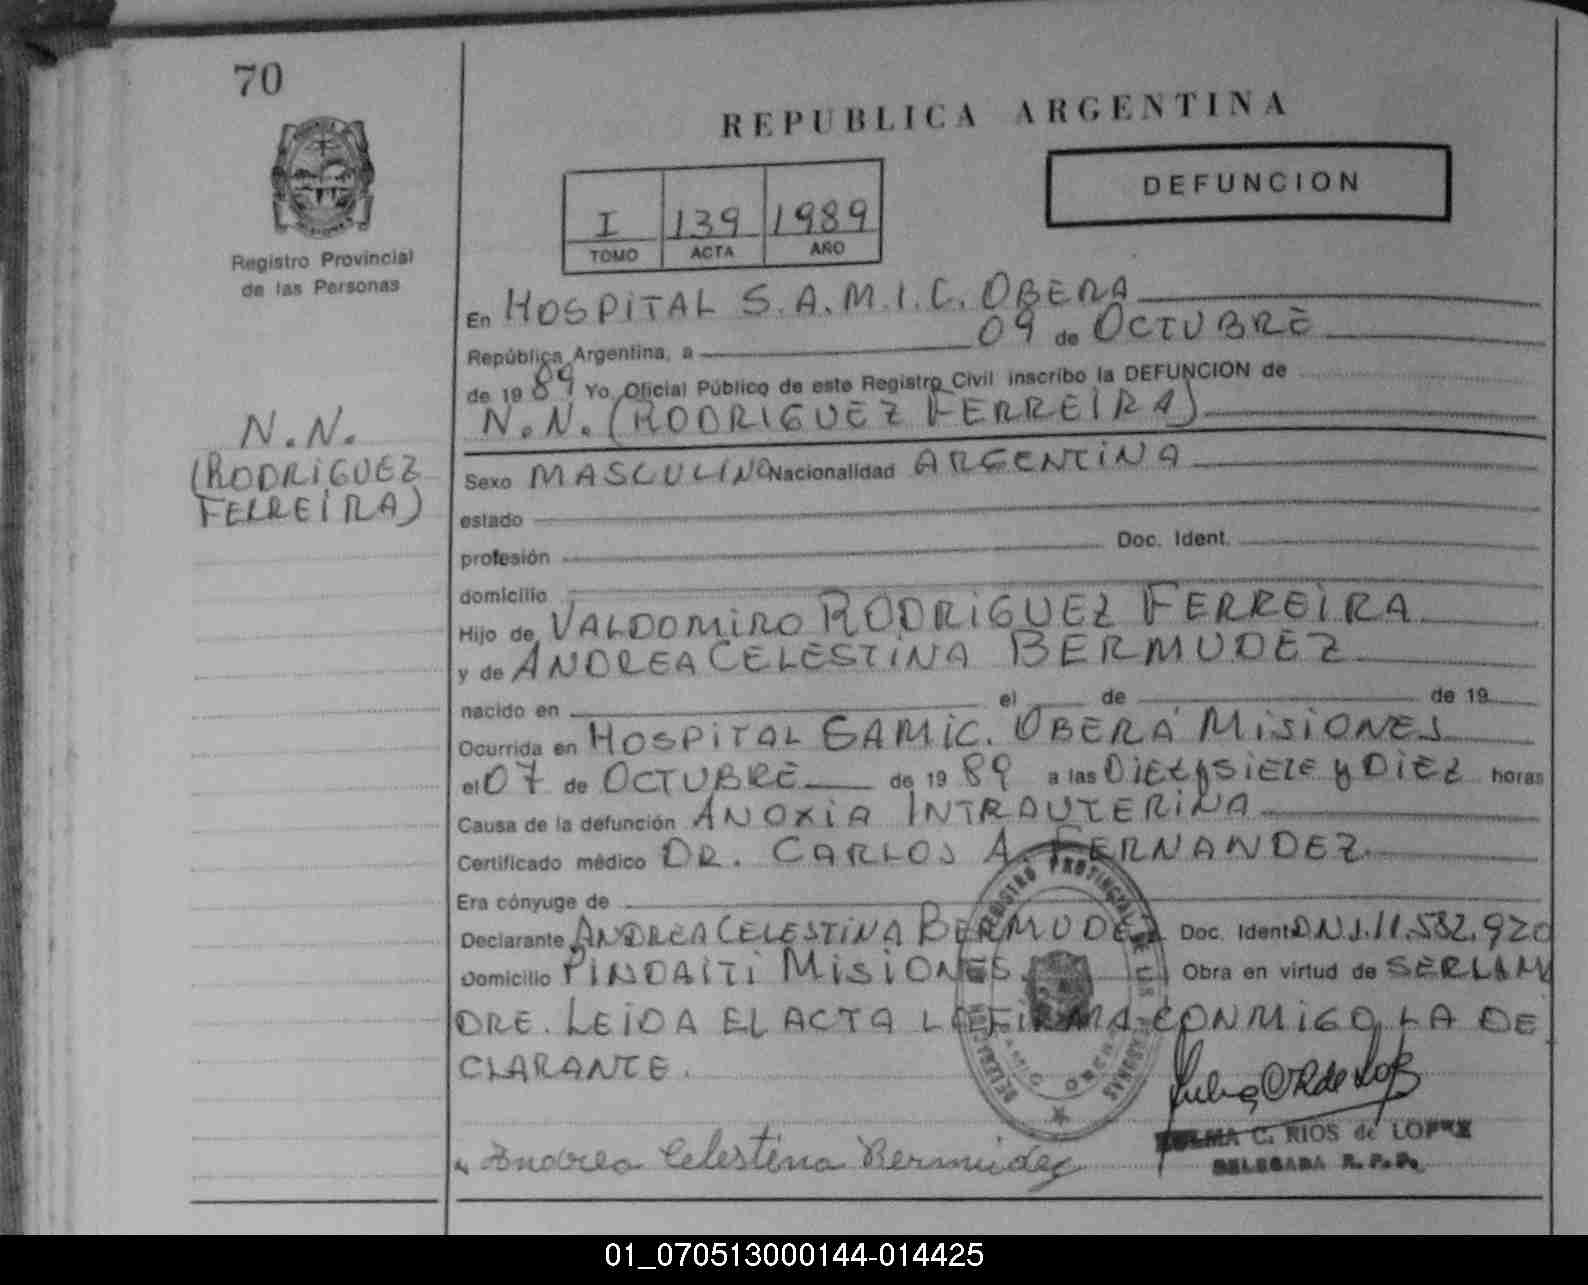 70
REPUBLICA ARGENTINA
DEFUNCION
I 139 1989
TOMO ACTA AÑO
Registro Provincial
de las Personas
N.N.
(RODRIGUEZ
FERREIRA)
En HOSPITAL S.A.M.I.C. OBERA
República Argentina, a 09 de OCTUBRE
de 19 89 Yo, Oficial Público de este Registro Civil inscribo la DEFUNCION de
N.N. (RODRIGUEZ FERREIRA)
Sexo MASCULINO Nacionalidad ARGENTINA
estado
profesión Doc. Ident.
domicilio
Hijo de VALDOMIRO RODRIGUEZ FERREIRA
y de ANDREA CELESTINA BERMUDEZ
nacido en el de de 19
Ocurrida en HOSPITAL SAMIC. OBERA MISIONES
el 07 de OCTUBRE de 19 89 a las DIEZ y SIETE y DIEZ horas
Causa de la defunción ANOXIA INTRAUTERINA
Certificado médico DR. CARLOS A. FERNANDEZ
Era cónyuge de
Declarante ANDREA CELESTINA BERMUDEZ Doc. Ident. D.N.I. 11.582.920
Domicilio PINDAITI MISIONES Obra en virtud de SER LA MA
DRE. LEIDA EL ACTA LA FIRMA CONMIGO, LA DE
CLARANTE.
REGISTRO PROVINCIAL DE LAS PERSONAS
Andrea Celestina Bermudez
C. RIOS de LOPEZ
DELEGADA R.P.P.
01_070513000144-014425